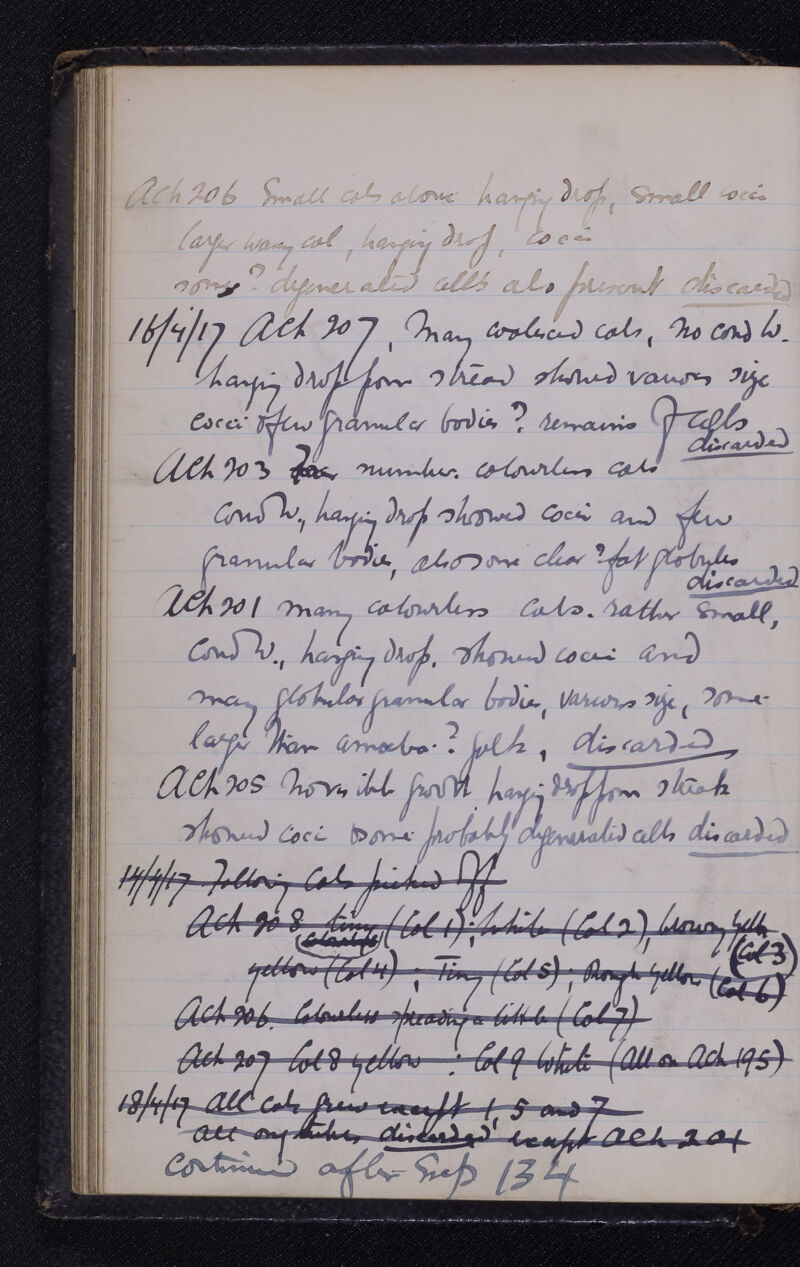 Ach 206 Small cols alone hanging drop, small cocci
larger waxy col, hanging drop, cocci
some ? degenerated cells also present discarded
16/4/17 Ach 207, Many coalesced cols, no cond W.
hanging drop from streak showed various size
cocci & few granular bodies ? remains of cells
discarded
Ach 203 number. colourless cols
cond W., hanging drop showed cocci and few
granular bodies, also some clear ? fat globules
discarded
Ach 201 many colourless cols. rather small,
cond W., hanging drop. showed cocci and
many globular granular bodies, various size, some
larger than amoeba. ? , discarded
Ach 205 No visible growth hanging drop from streak
showed cocci & some probably degenerated cells discarded
14/4/17 Following Cols picked off
Ach 208 tiny (Col 1); White (Col 2), browny yellow
(Col 3)
yellow (Col 4) ; Tiny (Col 5) ; Rough yellow (Col 6)
Ach 206. Colourless spreading a little (Col 7)
Ach 207 Col 8 yellow : Col 9 White (All on Ach 195)
18/4/17 All cols grew except 1, 5 and 7
All tubes discarded except Ach 201
Continued after Exp 134